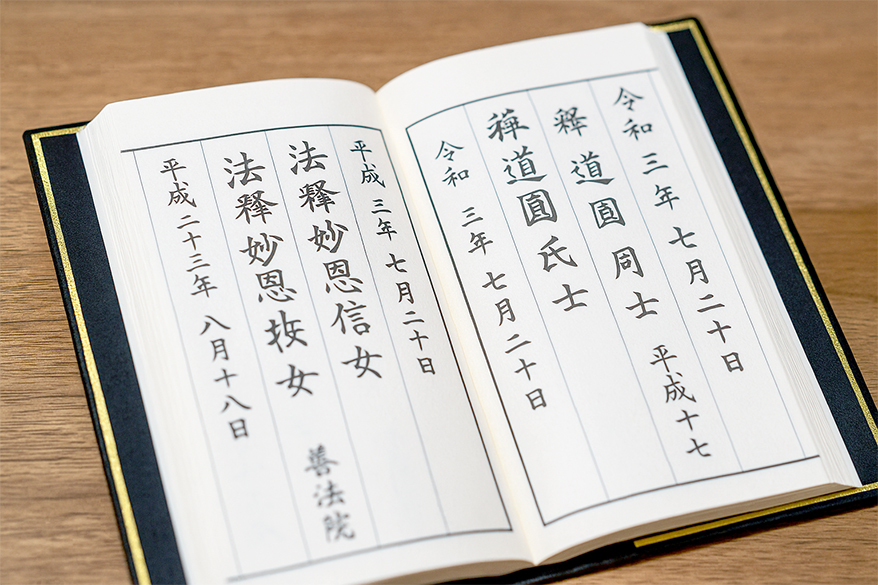 令和三年七月二十日
釋道圓周士 平成十七
道圓氏士
令和 三年 七月二十日
平成 三年 七月二十日
法釋妙恩信女
法釋妙恩女 善法院
平成 二十三年 八月十八日